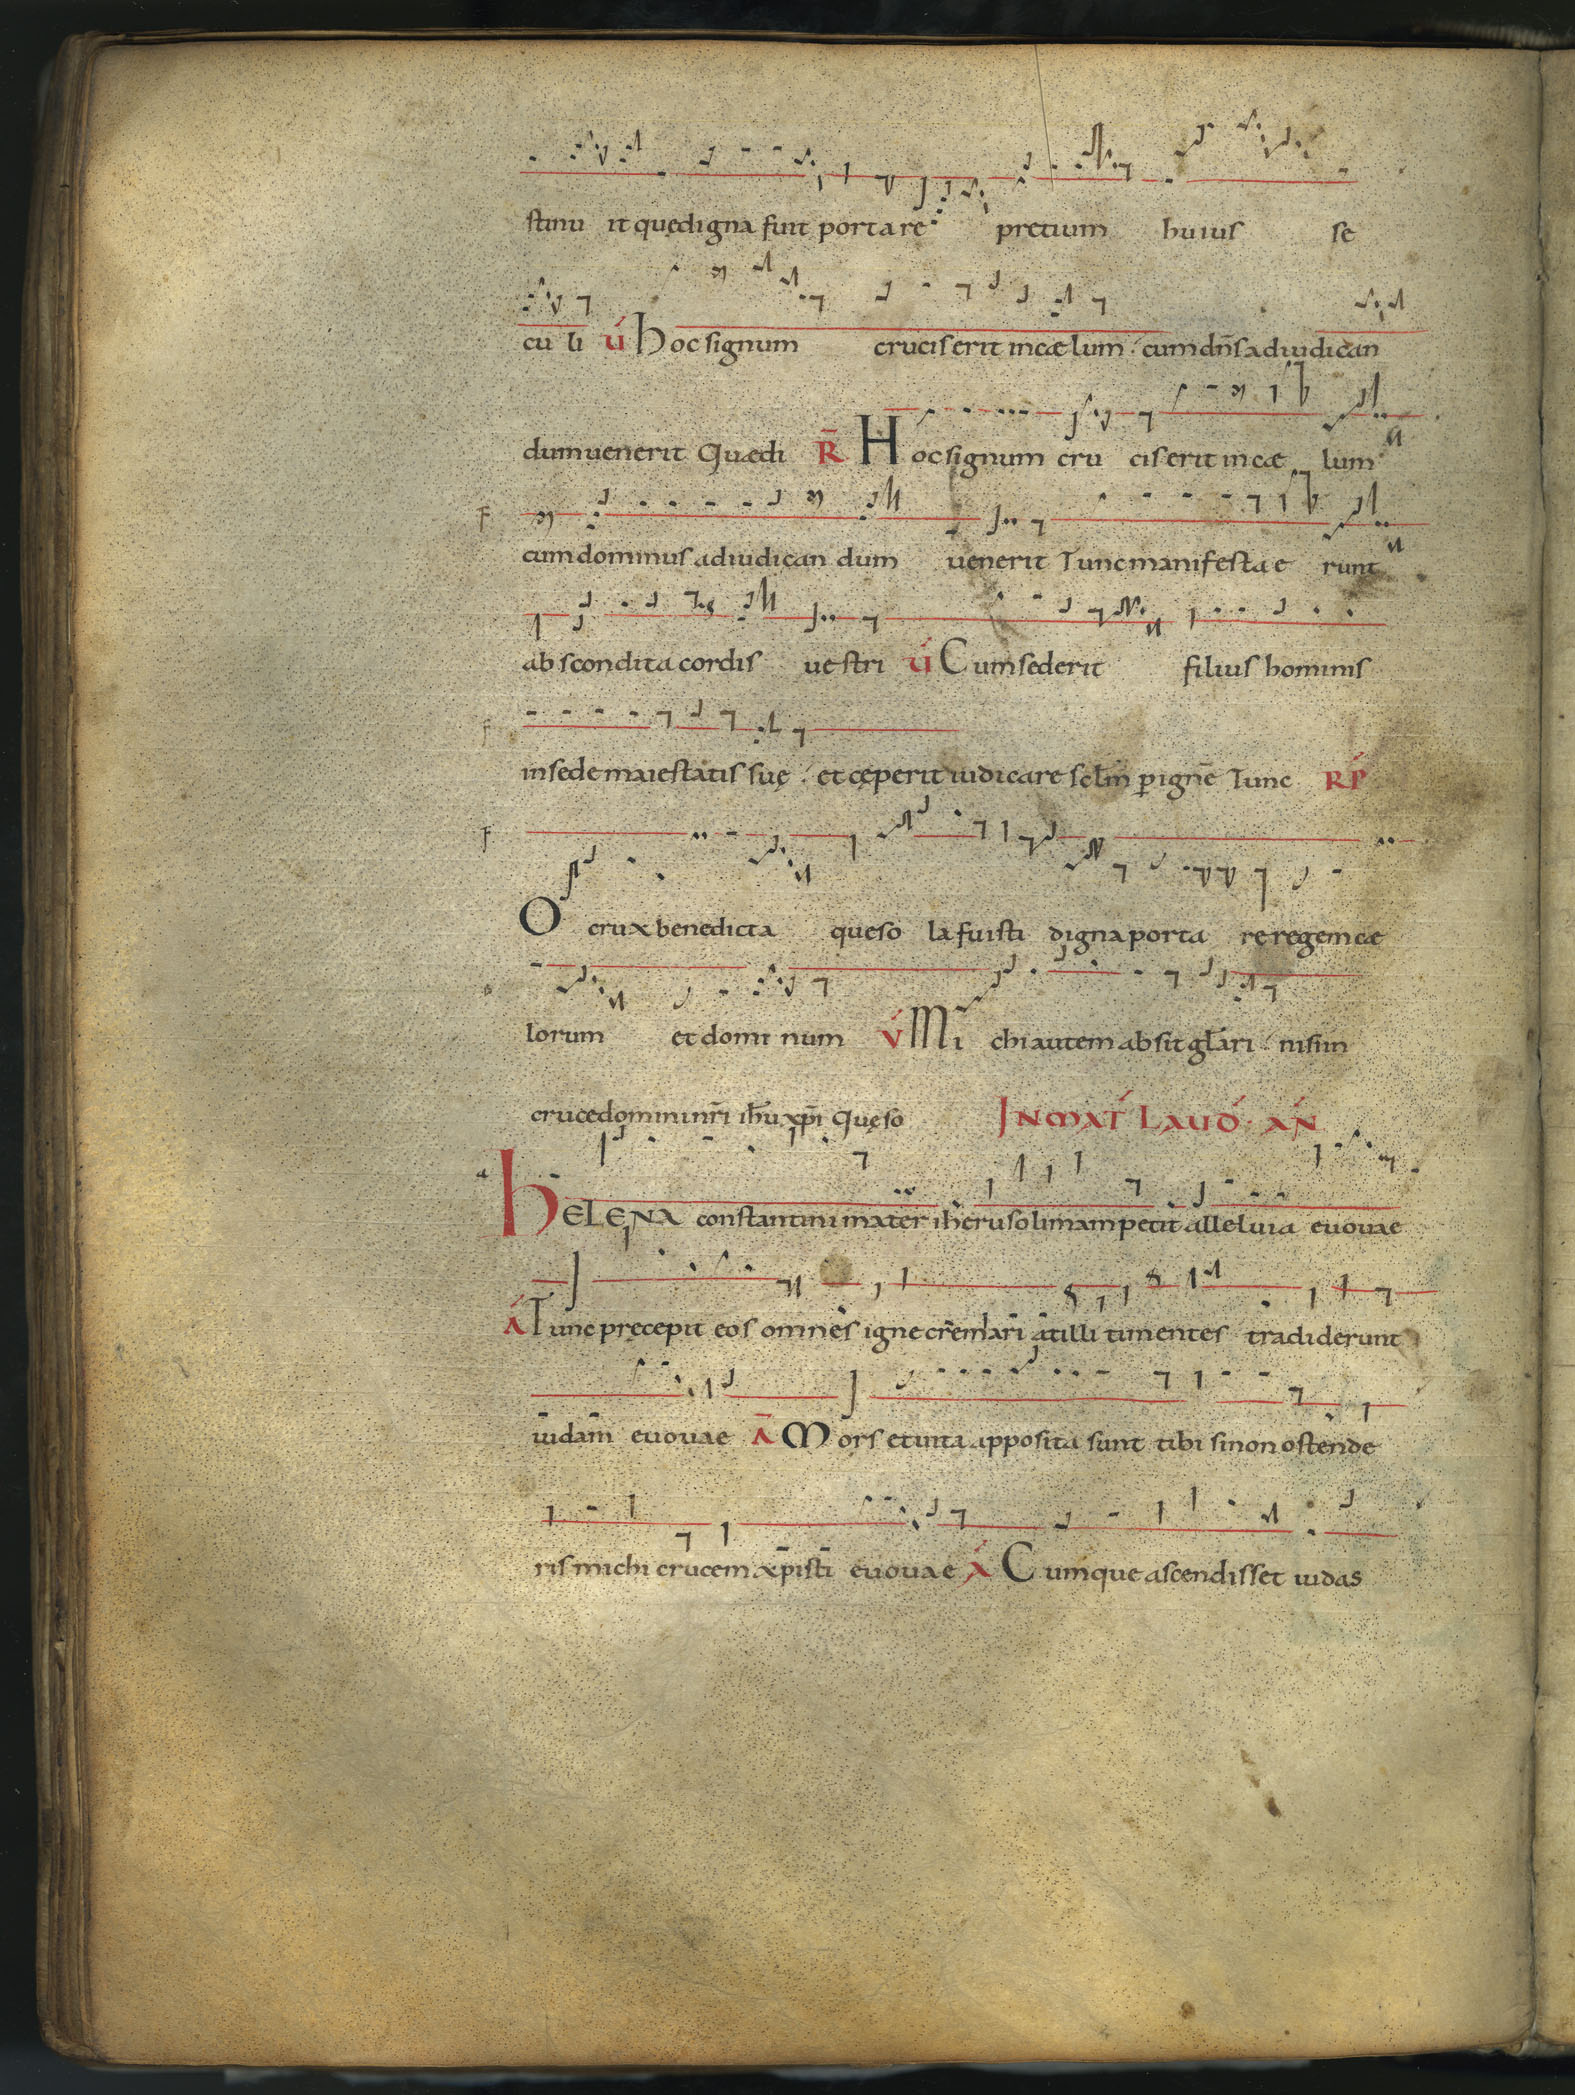 stinu it quę digna fuit portare pretium huius se
cu li V́ Hoc signum crucis erit in cælum. cum dn̄s ad iudican
dum uenerit Quædi R̄ Hoc signum cru cis erit in cæ lum
F cum dominus ad iudican dum uenerit Tunc manifesta e runt
abscondita cordis uestri V́ Cum sederit filius hominis
F in sede maiestatis suę. et cęperit iudicare sclm̄ p ignē Tunc RP̄
F O crux benedicta que so la fuisti digna porta re regem cæ
lorum et domi num V́ Michi autem absit gl̄ari nisi in
cruce domini nr̄i ih̄u xp̄i Quęso IN MAT́ LAUD́. AŃ
a HELENA constantini mater ih̄erusolimam petit alleluia euouae
Á Tunc precepit eos omnes igne cremari at illi timentes tradiderunt
iudam̄ euouae Ā Mors et uita apposita sunt tibi si non ostende
ris michi crucem xp̄isti euouae Á Cumque ascendisset iudas